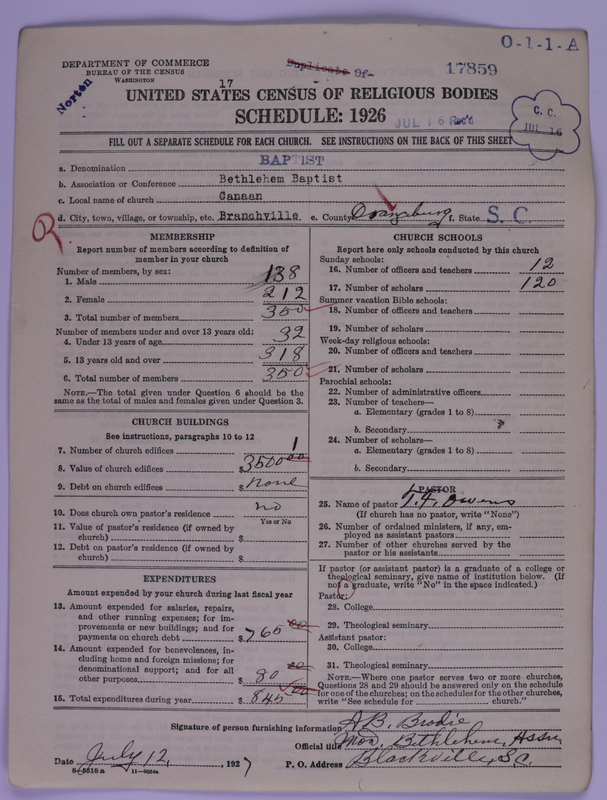 O-1-1-A
DEPARTMENT OF COMMERCE
BUREAU OF THE CENSUS
WASHINGTON
Duplicate Of-
17859
Norton
17
UNITED STATES CENSUS OF RELIGIOUS BODIES
SCHEDULE: 1926
JUL 16 Rec'd
C. C.
JUL 16
FILL OUT A SEPARATE SCHEDULE FOR EACH CHURCH. SEE INSTRUCTIONS ON THE BACK OF THIS SHEET
a. Denomination BAPTIST
b. Association or Conference Bethlehem Baptist
c. Local name of church Canaan
d. City, town, village, or township, etc. Branchville e. County Orangeburg f. State S. C.
R
MEMBERSHIP
Report number of members according to definition of
member in your church
Number of members, by sex:
1. Male 138
2. Female 212
3. Total number of members 350
Number of members under and over 13 years old:
4. Under 13 years of age 32
5. 13 years old and over 318
6. Total number of members 350
NOTE.—The total given under Question 6 should be
the same as the total of males and females given under Question 3.
CHURCH BUILDINGS
See instructions, paragraphs 10 to 12
7. Number of church edifices 1
8. Value of church edifices $3500 00
9. Debt on church edifices $ None
10. Does church own pastor's residence no
Yes or No
11. Value of pastor's residence (if owned by
church) $
12. Debt on pastor's residence (if owned by
church) $
EXPENDITURES
Amount expended by your church during last fiscal year
13. Amount expended for salaries, repairs,
and other running expenses; for im-
provements or new buildings; and for
payments on church debt $ 765 00
14. Amount expended for benevolences, in-
cluding home and foreign missions; for
denominational support; and for all
other purposes $ 80 00
15. Total expenditures during year $ 845 00
CHURCH SCHOOLS
Report here only schools conducted by this church
Sunday schools:
16. Number of officers and teachers 12
17. Number of scholars 120
Summer vacation Bible schools:
18. Number of officers and teachers
19. Number of scholars
Week-day religious schools:
20. Number of officers and teachers
21. Number of scholars
Parochial schools:
22. Number of administrative officers
23. Number of teachers—
a. Elementary (grades 1 to 8)
b. Secondary
24. Number of scholars—
a. Elementary (grades 1 to 8)
b. Secondary
PASTOR
25. Name of pastor T. F. Owens
(If church has no pastor, write "None")
26. Number of ordained ministers, if any, em-
ployed as assistant pastors
27. Number of other churches served by the
pastor or his assistants
If pastor (or assistant pastor) is a graduate of a college or
theological seminary, give name of institution below. (If
not a graduate, write "No" in the space indicated.)
Pastor:
28. College
29. Theological seminary
Assistant pastor:
30. College
31. Theological seminary
NOTE.—Where one pastor serves two or more churches,
Questions 28 and 29 should be answered only on the schedule
for one of the churches; on the schedules for the other churches,
write "See schedule for church."
Signature of person furnishing information A B. Brodie
Official title Mod. Bethlehem, Assn
Date July 12, 1927 P. O. Address Blackville, S.C.
8-5518 a 11-9034a